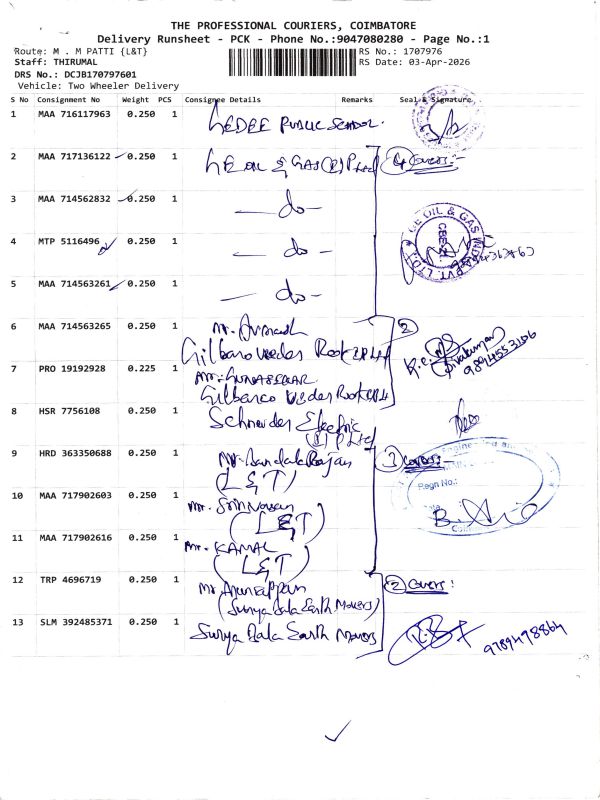 THE PROFESSIONAL COURIERS, COIMBATORE
Delivery Runsheet - PCK - Phone No.:9047080280 - Page No.:1
Route: M . M PATTI {L&T}
RS No.: 1707976
Staff: THIRUMAL
RS Date: 03-Apr-2026
DRS No.: DCJB170797601
Vehicle: Two Wheeler Delivery
S No Consignment No Weight PCS Consignee Details Remarks Seal & Signature
1 MAA 716117963 0.250 1 PUBLIC SCHOOL.
2 MAA 717136122 0.250 1 GE OIL & GAS (I) P Ltd 4 Covers:-
3 MAA 714562832 0.250 1 — do —
4 MTP 5116496 0.250 1 — do —
GE OIL & GAS INDIA PVT. LTD.
CBE
5 MAA 714563261 0.250 1 — do —
6 MAA 714563265 0.250 1 Mr. 2
Gilbarco Veeder Root
9894553106
7 PRO 19192928 0.225 1 Mr. GUNASEKAR
Gilbarco Veeder Root
8 HSR 7756108 0.250 1 Schneider Electric
(I) P Ltd
9 HRD 363350688 0.250 1 Mr. 3 Covers:-
(L&T)
Regn No.:
10 MAA 717902603 0.250 1 Mr. Srinivasan
(L&T)
11 MAA 717902616 0.250 1 Mr. KAMAL
(L&T)
12 TRP 4696719 0.250 1 Mr. 2 Covers:
(Surya Bala Earth Movers)
13 SLM 392485371 0.250 1 Surya Bala Earth Movers
9789498864